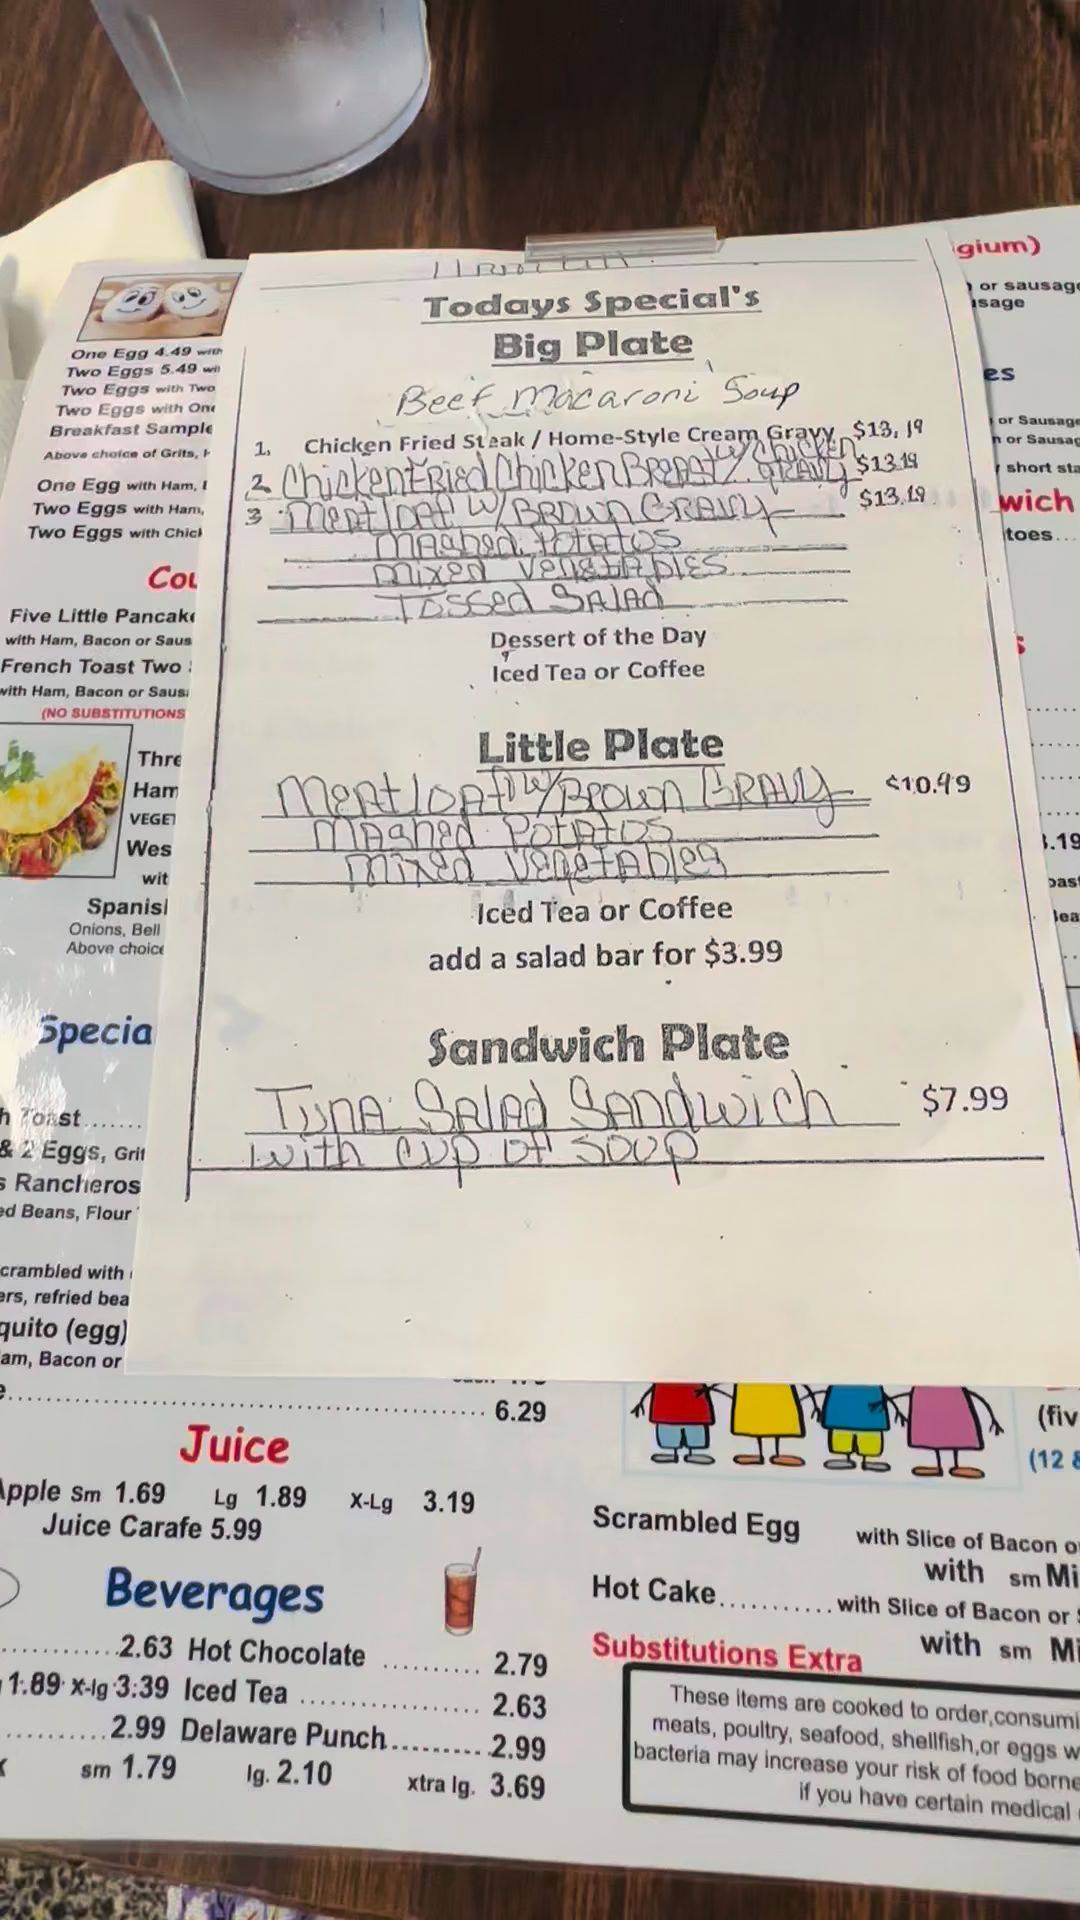 Todays Special's
Big Plate
Beef Macaroni Soup
1. Chicken Fried Steak / Home-Style Cream Gravy $13.19
2 Chicken Fried Chicken Breast w/ Chicken Gravy $13.19
3 Meatloaf w/ Brown Gravy $13.19
Mashed Potatos
Mixed Vegetables
Tossed Salad
Dessert of the Day
Iced Tea or Coffee
Little Plate
Meatloaf w/ Brown Gravy $10.49
Mashed Potatos
Mixed Vegetables
Iced Tea or Coffee
add a salad bar for $3.99
Sandwich Plate
Tuna Salad Sandwich $7.99
with cup of soup
One Egg 4.49 with
Two Eggs 5.49
Two Eggs with Two
Two Eggs with
Breakfast Sample
Above choice of Grits,
One Egg with Ham,
Two Eggs with Ham,
Two Eggs with
Five Little
with Ham, Bacon or
French Toast Two
with Ham, Bacon or
(NO SUBSTITUTIONS
Ham
Onions, Bell
Above choice
Toast.......
& 2 Eggs,
Rancheros
Beans, Flour
with
refried
(egg)
Bacon or
6.29
Juice
Apple sm 1.69 Lg 1.89 X-Lg 3.19
Juice Carafe 5.99
Beverages
2.63 Hot Chocolate .......... 2.79
1.89 x-lg 3.39 Iced Tea ................ 2.63
2.99 Delaware Punch.......... 2.99
sm 1.79 lg. 2.10 xtra lg. 3.69
or
or
or
short
wich
Scrambled Egg with Slice of Bacon
with sm
Hot Cake........... with Slice of Bacon or
with sm
Substitutions Extra
These items are cooked to order,
meats, poultry, seafood, shellfish,or eggs
bacteria may increase your risk of food borne
if you have certain medical